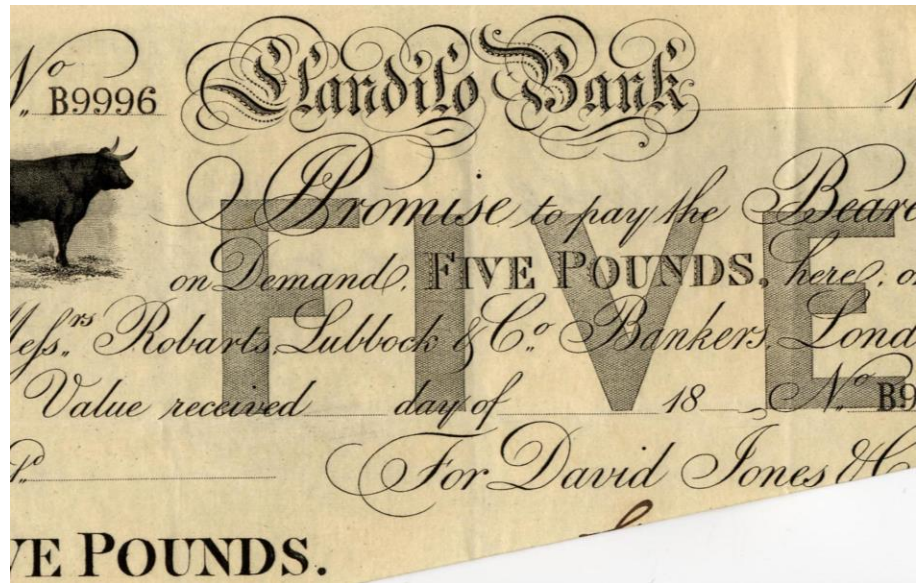 No. B9996 Llandilo Bank 1
I Promise to pay the Beare
on Demand, FIVE POUNDS, here, or
Messrs. Robarts, Lubbock & Co. Bankers, Lond
Value received day of 18 No. B9
For David Jones & C
VE POUNDS.
FIVE